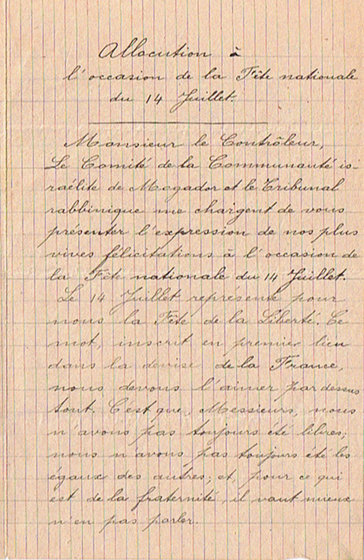 Allocution à
l'occasion de la Fête nationale
du 14 Juillet.
Monsieur le Contrôleur,
Le Comité de la Communauté is-
raélite de Mogador et le Tribunal
rabbinique me chargent de vous
présenter l'expression de nos plus
vives félicitations à l'occasion de
la Fête nationale du 14 Juillet.
Le 14 Juillet représente pour
nous la Fête de la Liberté. Ce
mot, inscrit en premier lieu
dans la devise de la France,
nous devons l'aimer par dessus
tout. C'est que, Messieurs, nous
n'avons pas toujours été libres;
nous n'avons pas toujours été les
égaux des autres; et, pour ce qui
est de la fraternité, il vaut mieux
n'en pas parler.